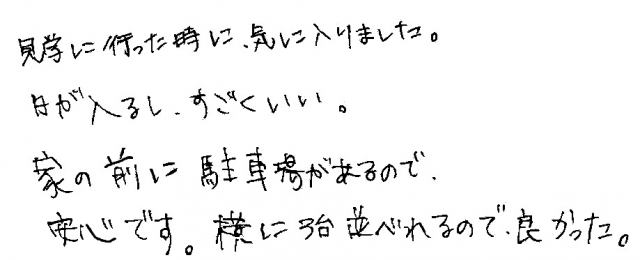 見学に行った時に、気に入りました。
日が入るし、すごくいい。
家の前に駐車場があるので、
安心です。横に3台並べれるので、良かった。